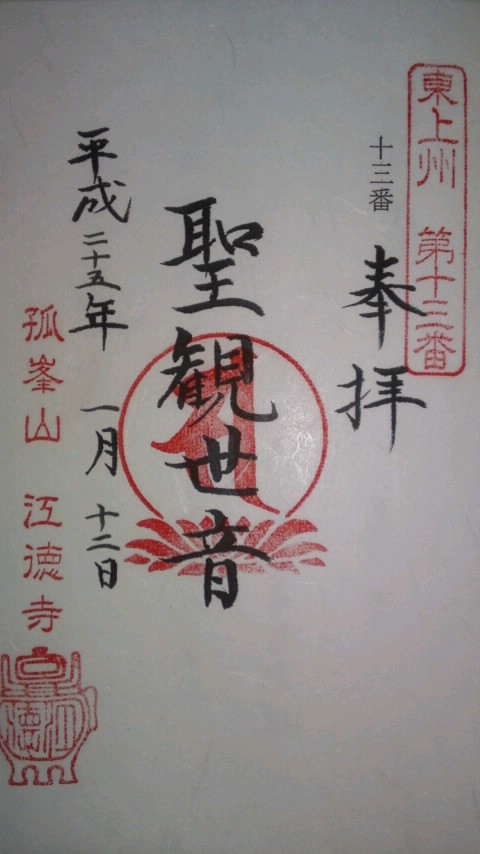 東上州 第十三番
十三番
奉拝
聖観世音
平成二十五年 一月 十二日
孤峯山 江徳寺